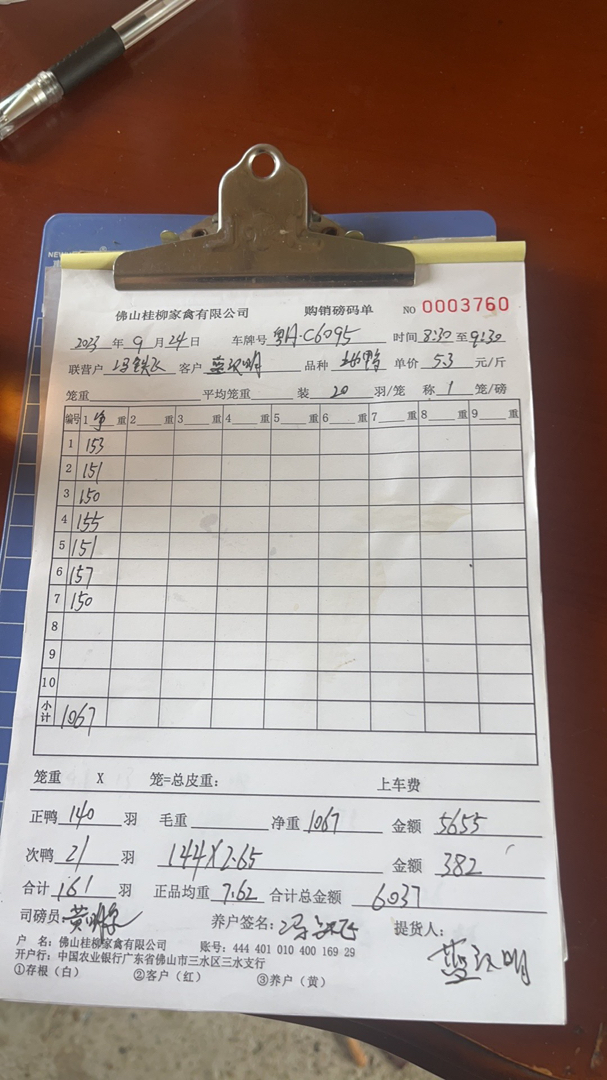 佛山桂柳家禽有限公司 购销磅码单 NO 0003760
2023 年 9 月 24 日 车牌号 粤A·C6095 时间 8:30 至 9:30
联营户 冯铁飞 客户 蓝汉明 品种 单价 5.3 元/斤
笼重 平均笼重 装 20 羽/笼 称 1 笼/磅
编号 1 净 重 2 重 3 重 4 重 5 重 6 重 7 重 8 重 9 重
1 153
2 151
3 150
4 155
5 151
6 157
7 150
8
9
10
小计 1067
笼重 X 笼=总皮重： 上车费
正鸭 140 羽 毛重 净重 1067 金额 5655
次鸭 21 羽 144X2.65 金额 382
合计 161 羽 正品均重 7.62 合计总金额 6037
司磅员： 养户签名： 冯铁飞 提货人：
蓝汉明
户 名：佛山桂柳家禽有限公司 账号：444 401 010 400 169 29
开户行：中国农业银行广东省佛山市三水区三水支行
①存根（白） ②客户（红） ③养户（黄）